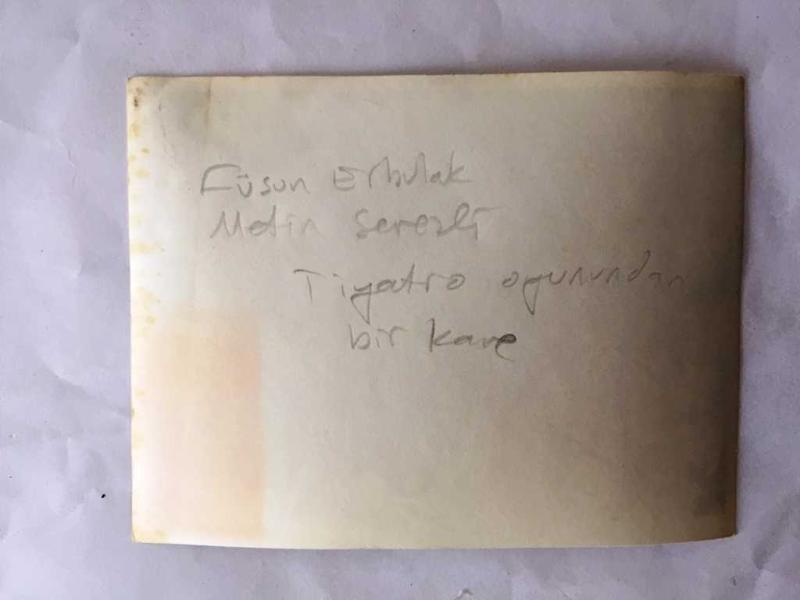 Füsun Erbulak
Metin Serezli
Tiyatro oyunundan
bir kare